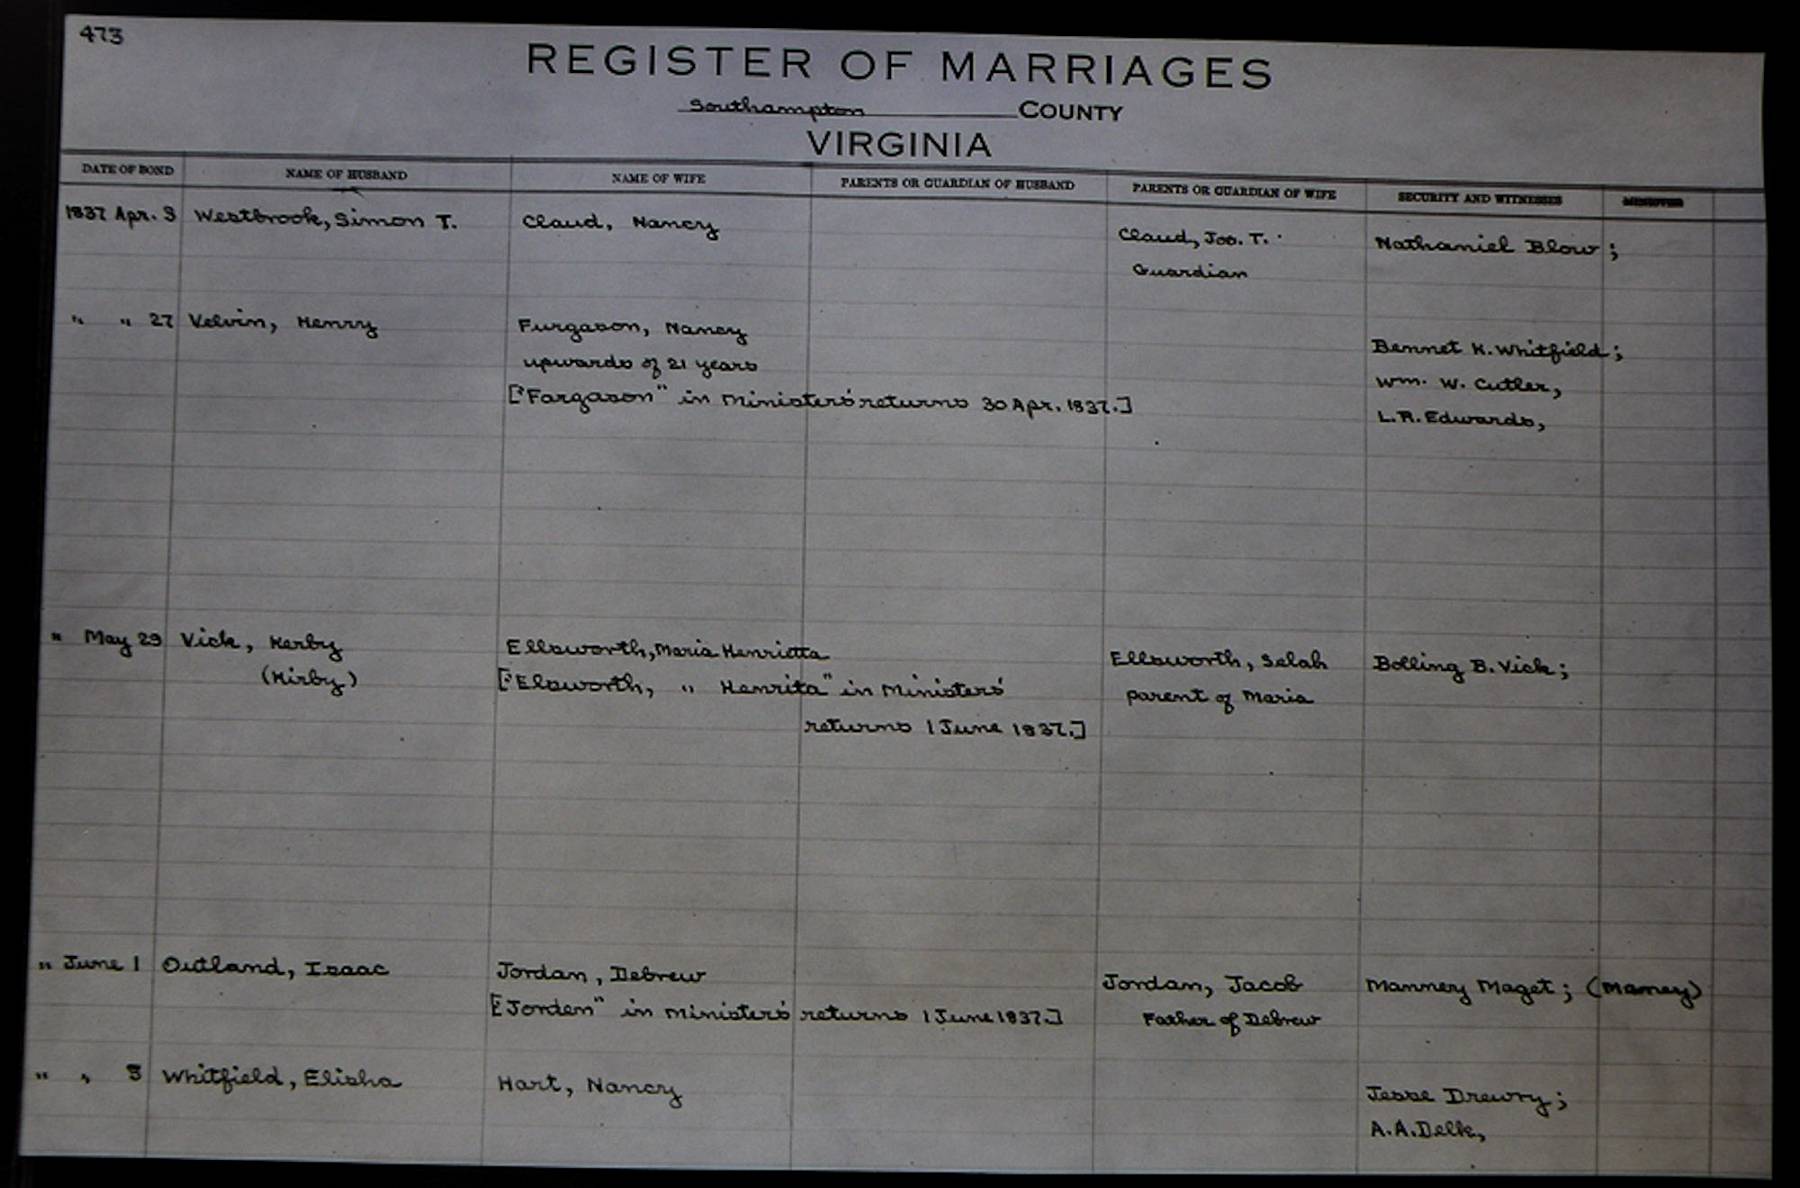 473
REGISTER OF MARRIAGES
Southampton COUNTY
VIRGINIA
DATE OF BOND NAME OF HUSBAND NAME OF WIFE PARENTS OR GUARDIAN OF HUSBAND PARENTS OR GUARDIAN OF WIFE SECURITY AND WITNESSES
1837 Apr. 3 Westbrook, Simon T. Claud, Nancy Claud, Jos. T. Nathaniel Blow;
Guardian
" " 27 Velvin, Henry Furgason, Nancy Bennet K. Whitfield;
upwards of 21 years Wm. W. Cutler,
["Fargason" in Ministers' returns 30 Apr. 1837.] L.R. Edwards,
" May 29 Vick, Kerby Ellsworth, Maria Henrietta Ellsworth, Selah Bolling B. Vick;
(Kirby) ["Elsworth, " Henrita" in Ministers' parent of Maria
returns 1 June 1837.]
" June 1 Outland, Isaac Jordan, Debrew Jordan, Jacob Mannery Maget; (Mamey)
["Jorden" in Ministers' returns 1 June 1837.] Father of Debrew
" " 5 Whitfield, Elisha Hart, Nancy Jesse Drewry;
A.A. Delk,